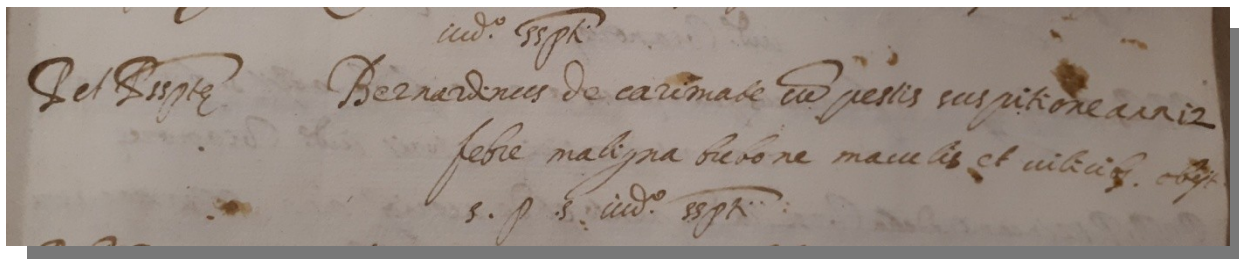 iud.o sspti
P et P sspte Bernardinus de carimate cu pestis suspitione ann 12
febre maligna bubone maculis et obijt
s. p. s. iud.o sspti